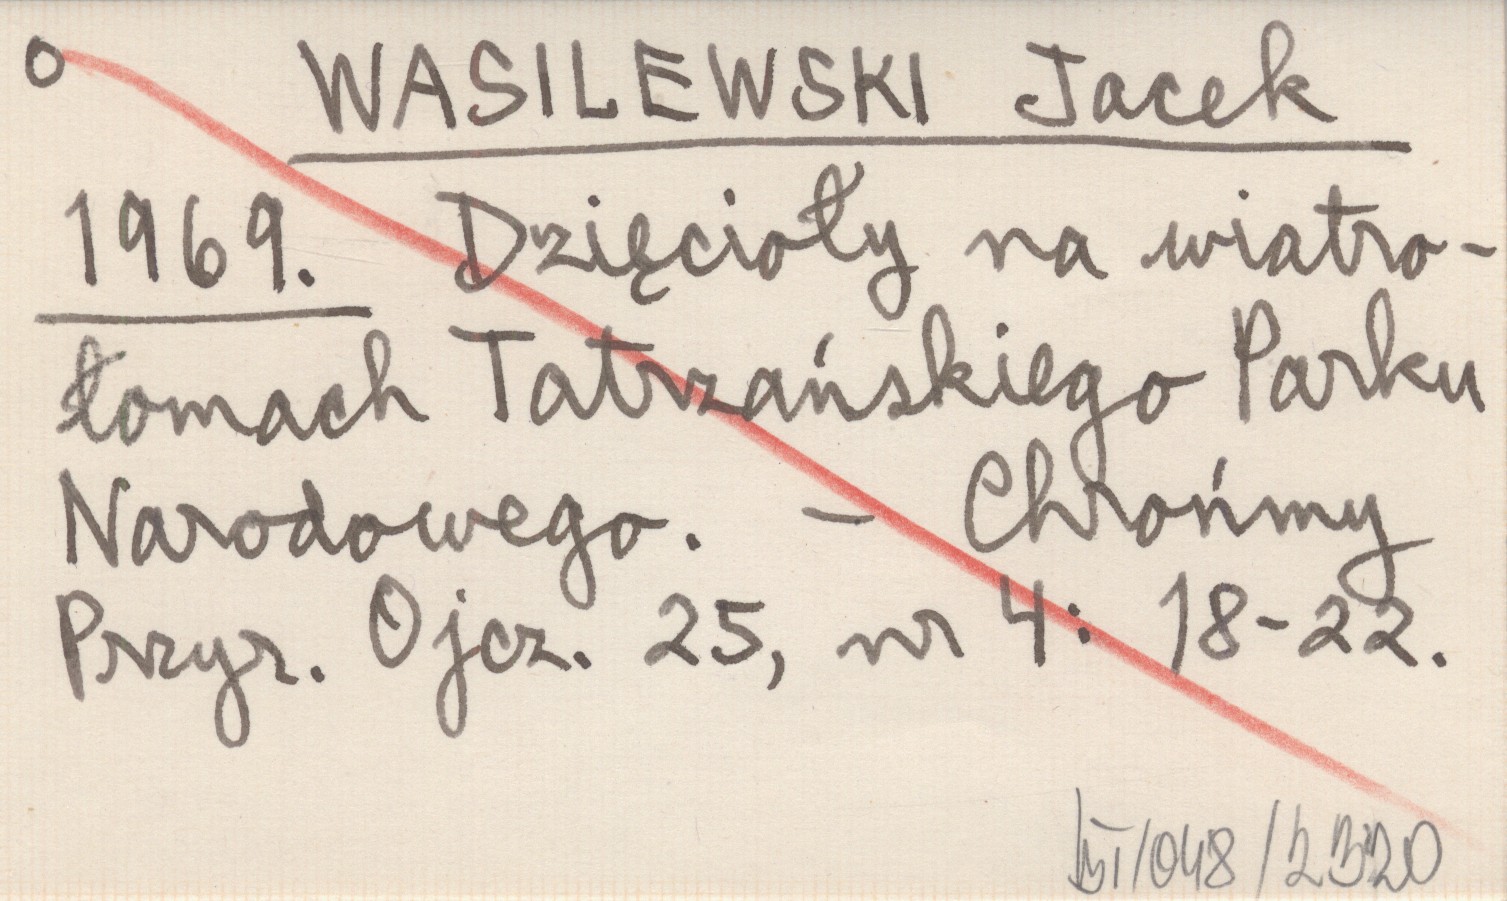 o WASILEWSKI Jacek
1969. Dzięcioły na wiatro-
łomach Tatrzańskiego Parku
Narodowego. - Chrońmy
Przyr. Ojcz. 25, nr 4: 18-22.
/048/2320